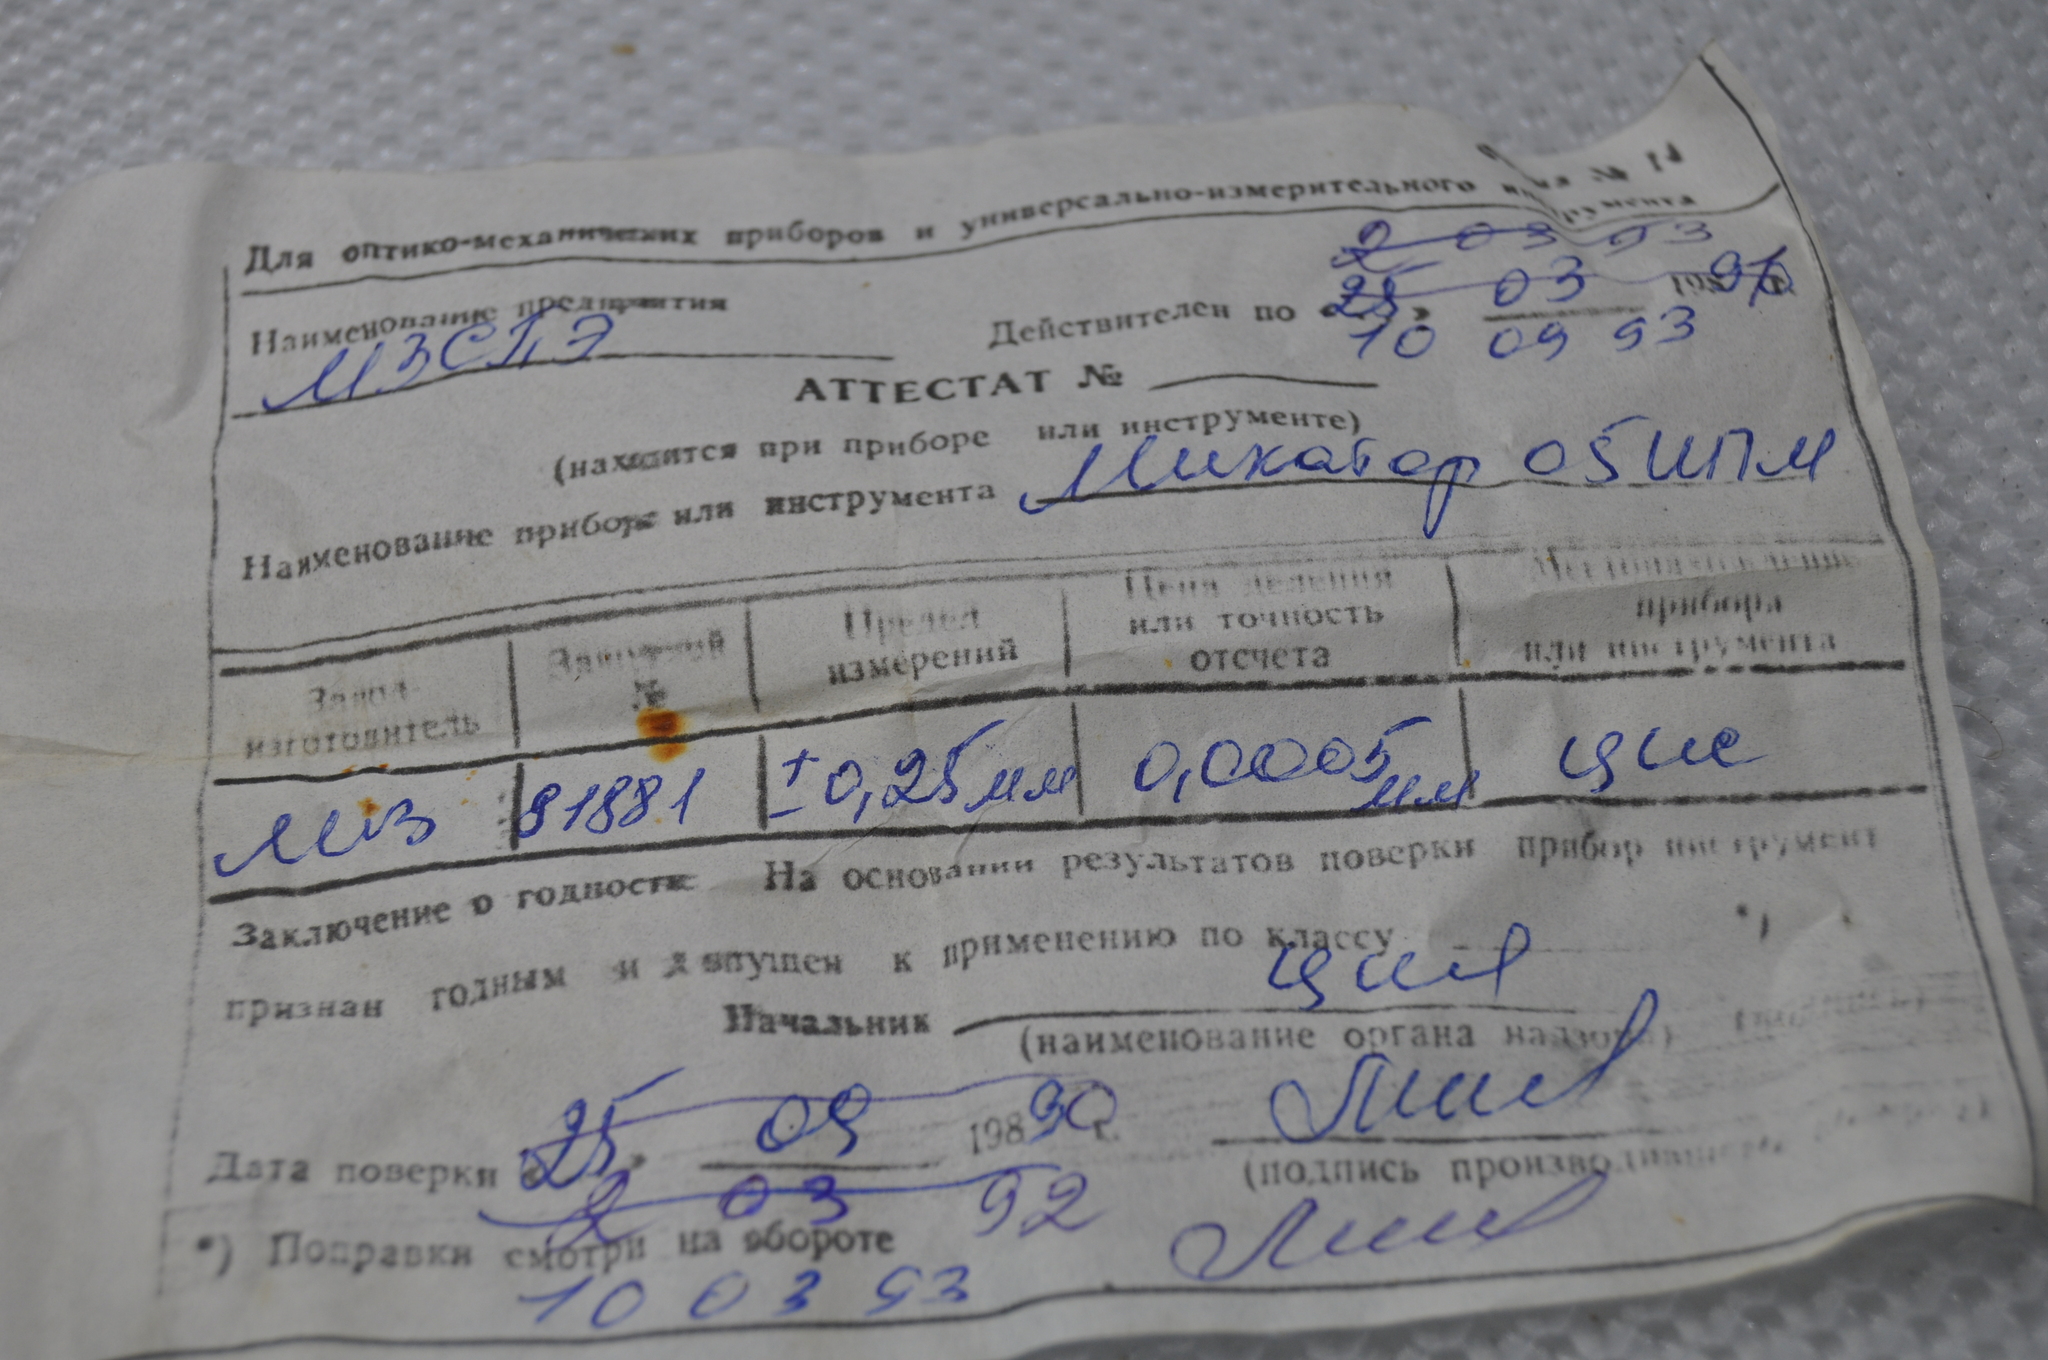 № 14
Для оптико-механических приборов и универсально-измерительного инструмента
2 03 93
Наименование предприятия
Действителен по «25» 03 198 91 г.
МЗСПЭ
10 09 93
АТТЕСТАТ №
(находится при приборе или инструменте)
Наименование прибора или инструмента Микатор 05ИПМ
Завод-изготовитель
Заводской №
Предел измерений
Цена деления или точность отсчета
Местонахождение прибора или инструмента
МИЗ 81881 ±0,25мм 0,0005 мм ЦИС
Заключение о годности: На основании результатов поверки прибор инструмент
признан годным и допущен к применению по классу *)
Начальник ЦИЛ
(наименование органа надзора) (подпись)
Дата поверки «25» 09 198 90 г.
(подпись производившего поверку)
2 03 92
*) Поправки смотри на обороте
10 03 93